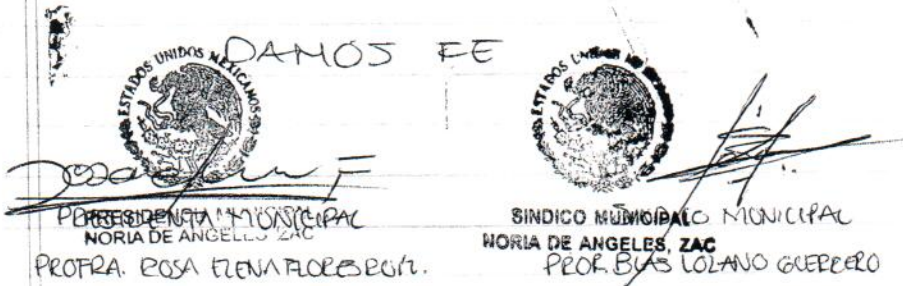 DAMOS FE
ESTADOS UNIDOS MEXICANOS
ESTADOS UNIDOS
PRESIDENCIA MUNICIPAL
PRESIDENTA MUNICIPAL
NORIA DE ANGELES ZAC
PROFRA. ROSA ELENA FLORES RUIZ.
SINDICO MUNICIPAL
SINDICO MUNICIPAL
NORIA DE ANGELES, ZAC
PROF. BLAS LOZANO GUERRERO